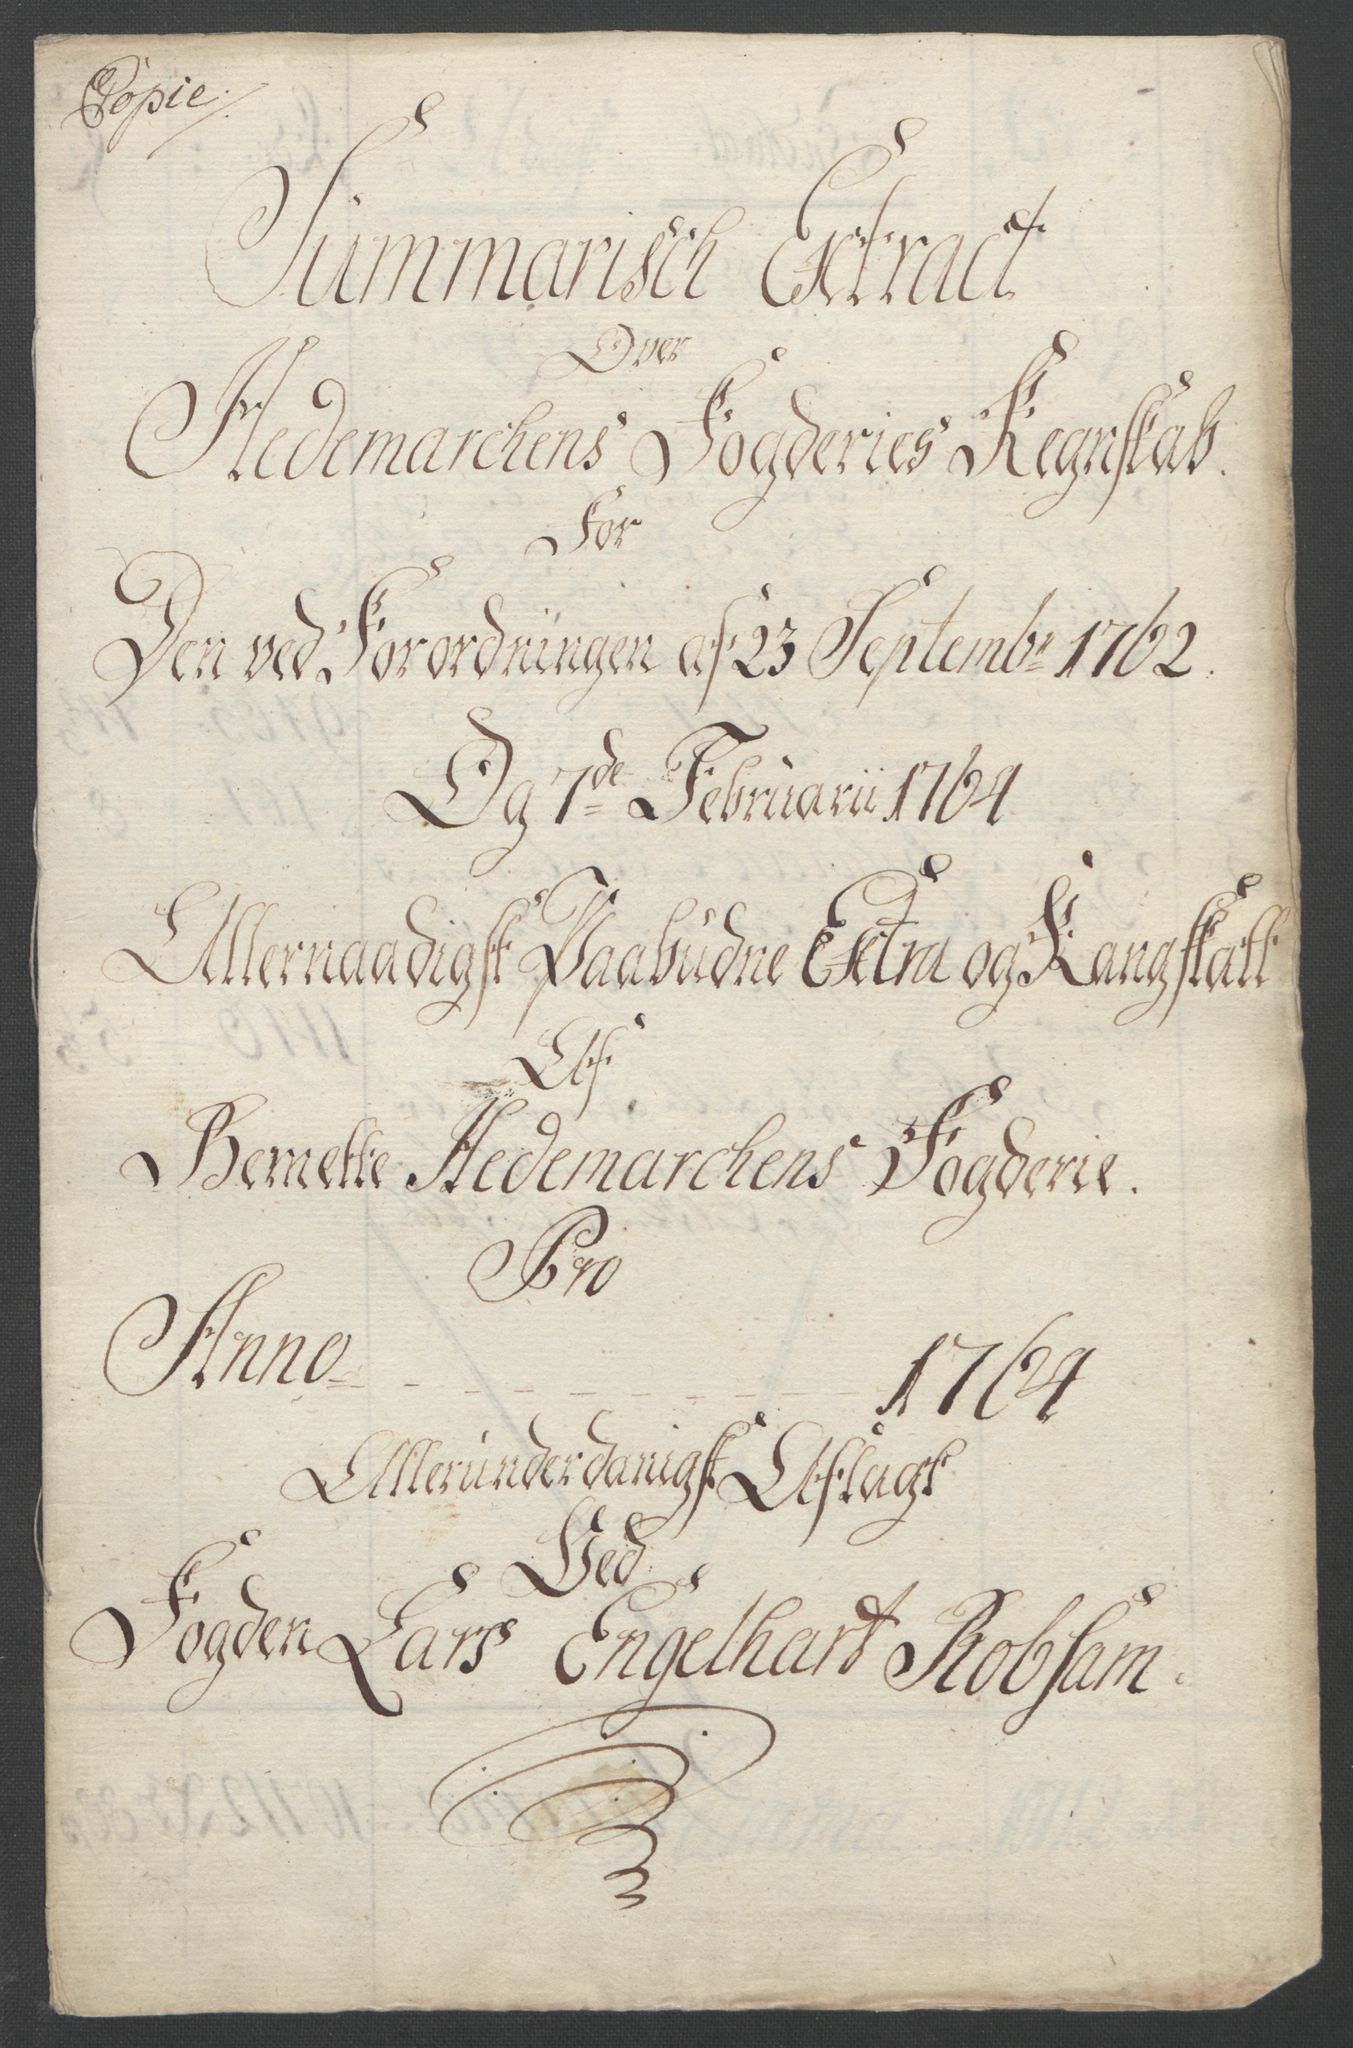 Copie.
Summarisch Extract
Over
Hedemarchens Fogderies Regnskab.
For
Den ved Forordningen af 23 Septembr 1762.
Og 7de Februarii 1764
Allernaadigst Paabudne Extra og Rangskatt
Af
Bemelte Hedemarchens Fogderie.
Pro
Anno - - - - - - - - - - - 1764
Allerunderdanigst Aflagt
Ved
Fogden Lars Engelhart Robsam.